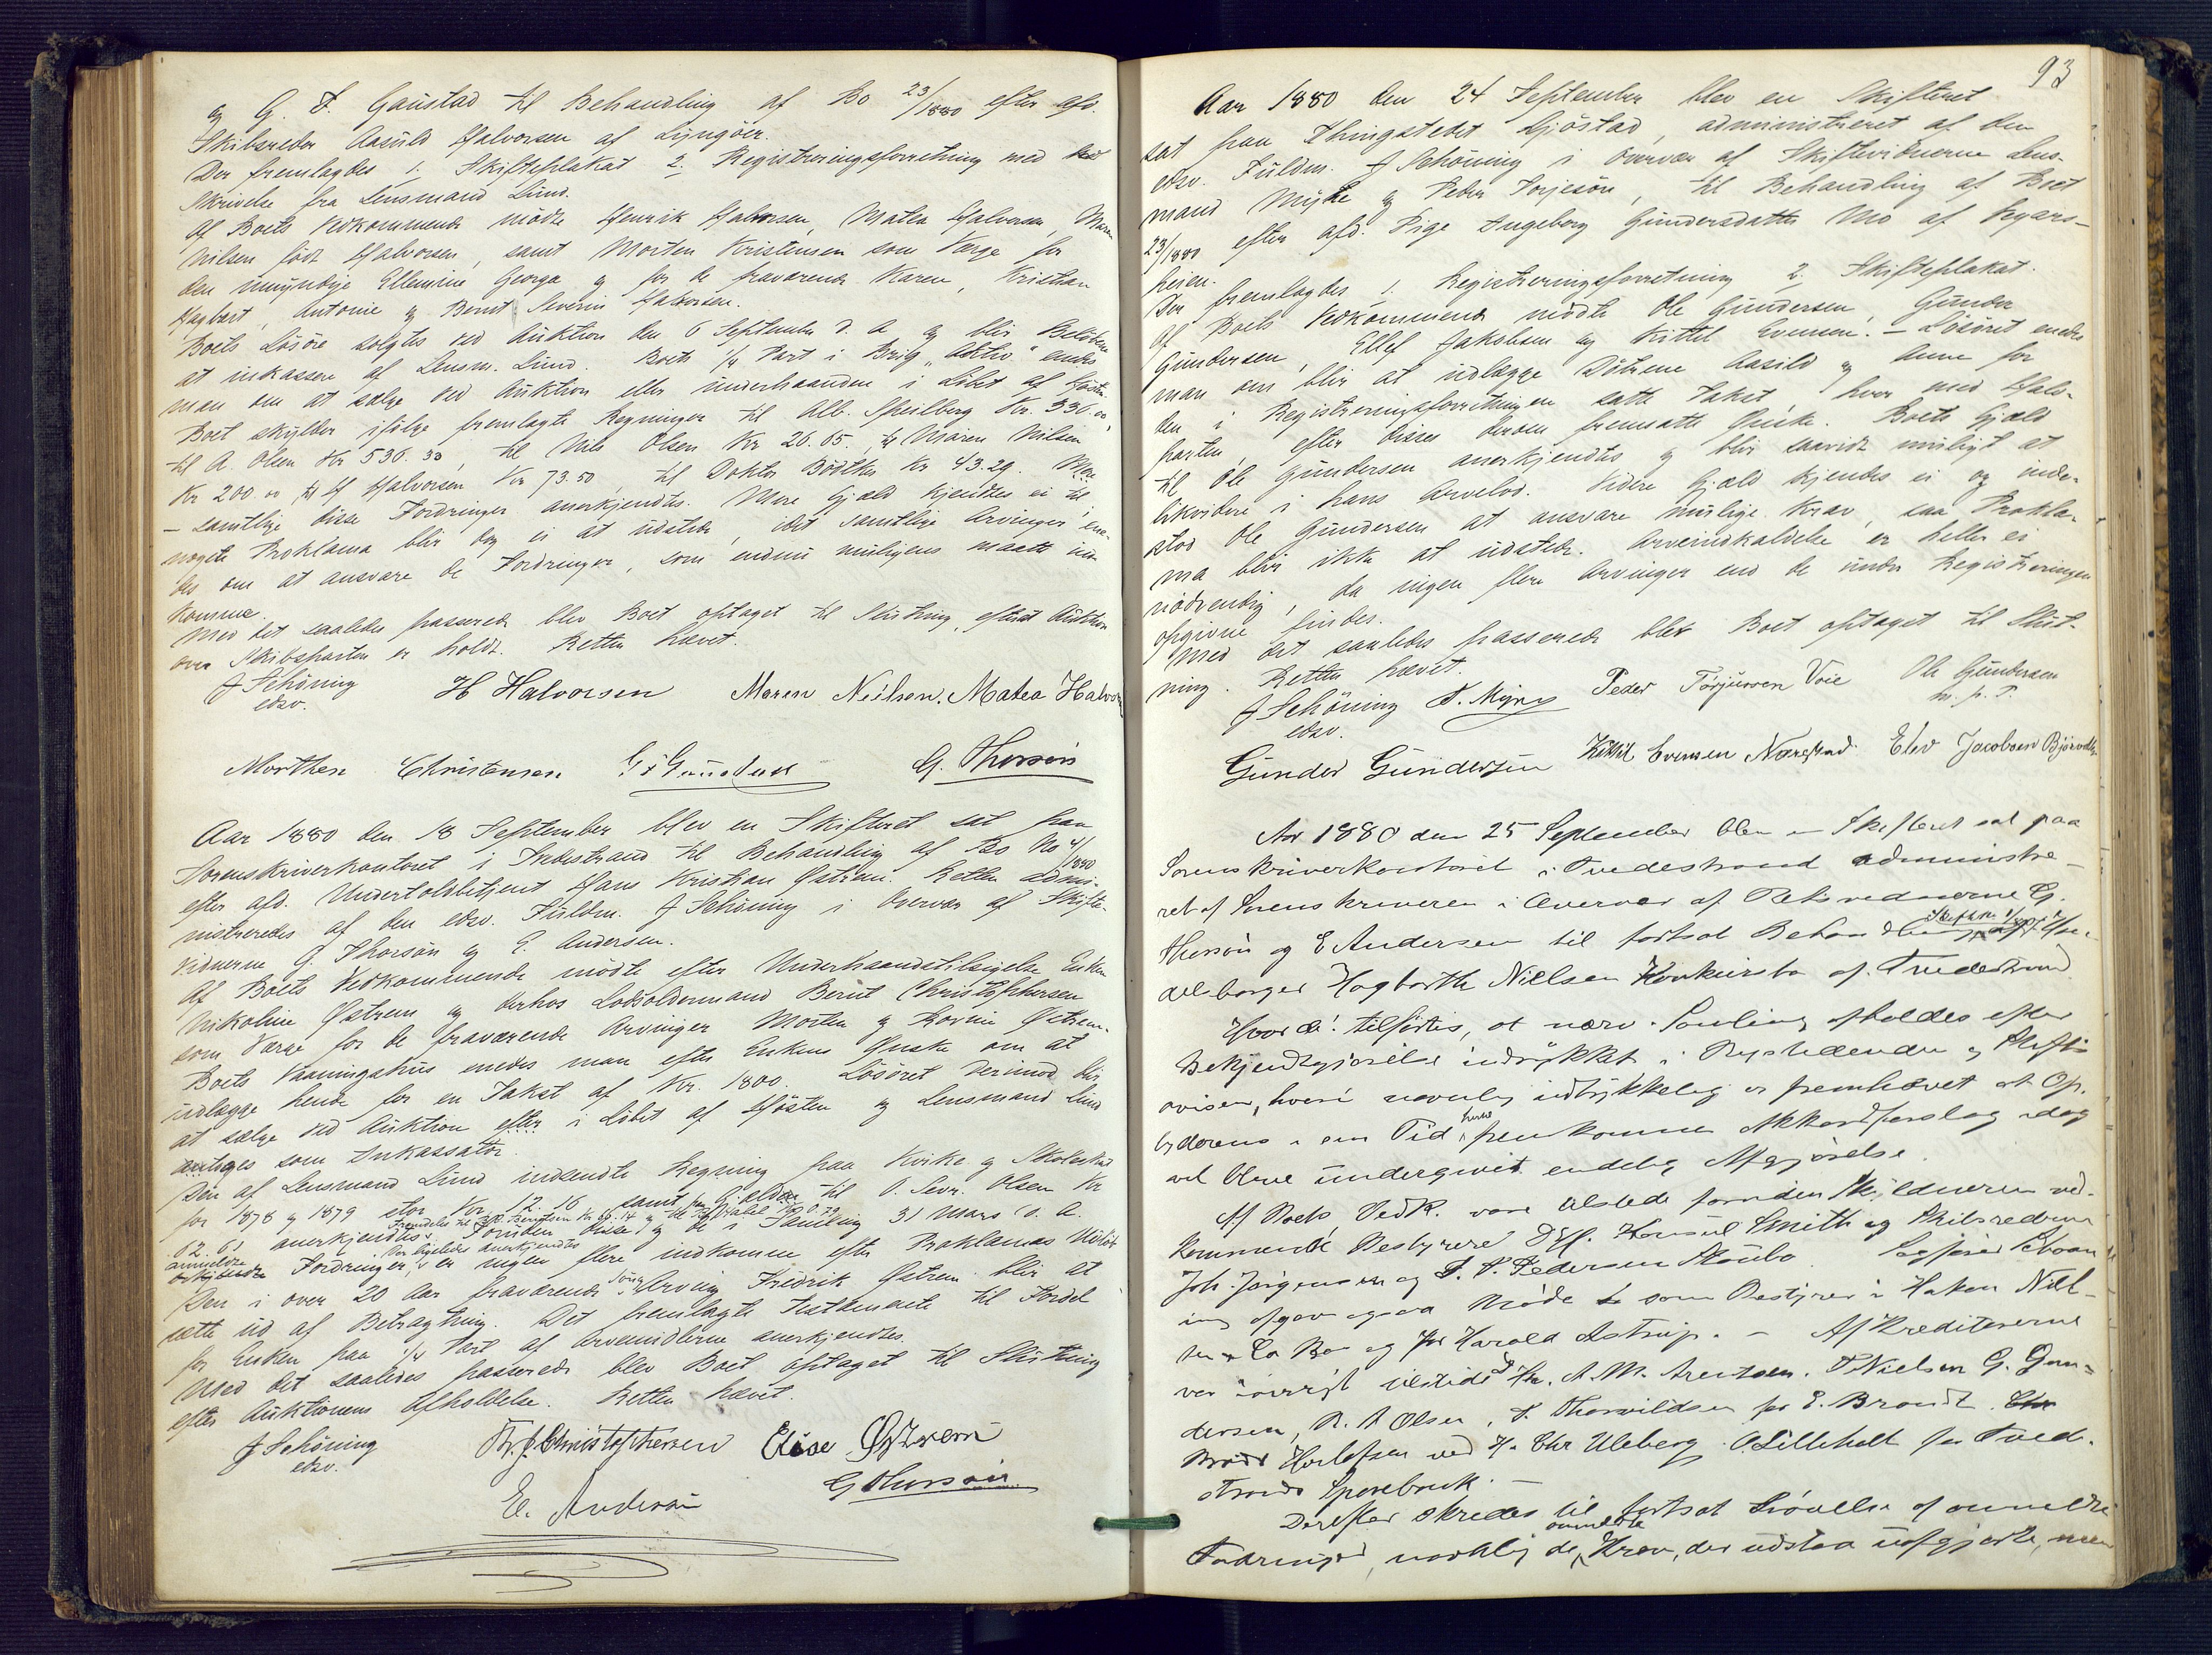 og G. F. Gaustad til Behandling af Bo 23/1880 efter afd.
Skibsreder Aasuld Halvorsen af Lyngöer.
Der fremlagdes 1. Skifteplakat 2. Registreringsforretning med
Skrivelse fra Lensmand Lund.
Af Boets Vedkommende mödte Henrik Halvorsen, Matea Halvorsen, Maren
Nilsen födt Halvorsen, samt Morten Kristensen som Værge for
den umyndige Ellemine Georga og for de fraværende Karen, Kristian
Hagbart, Antonie og Bernt Severin Halvorsen.
Boets Lösöre solgtes ved Auktion den 6 September d. a. og blir Belöbene
at inkassere af Lensm. Lund. Boets 1/4 Part i Brig "Aktiv" enedes
man om at sælge ved Auktion eller underhaanden i Löbet af Hösten.
Boet skylder ifölge fremlagte Regninger til Alb. Speilberg Kr. 330.00,
til A. Olsen Kr 536.33, til Nils Olsen Kr 26.65. til Maren Nilsen
Kr 200.00 til H Halvorsen Kr 73.50, til Doktor Bödtker Kr 43.29.
– samtlige disse Fordringer anerkjendtes. Mere Gjæld kjendtes ei til
noget Proklama blir dog ei at udstede, idet samtlige Arvinger ene-
des om at ansvare de Fordringer, som endnu muligens maatte ind-
komme.
Med det saaledes passerede blev Boet optaget til Slutning, efterat Auktion
over Skibsparten er holdt. Retten hævet.
J Schöning H Halvorsen Maren Neilsen. Matea Halvorsen
edsv.
Morthen Christensen G. Thorsön
Aar 1880 den 18 September blev en Skifteret sat paa
Sorenskriverkontoret i Tvedestrand til Behandling af Bo No 4/1880
efter afd. Undertoldbetjent Hans Kristian Östrem. Retten admi-
nistreredes af den edsv. Fuldm. J Schöning i Overvær af Skifte-
vidnerne G. Thorsön og E. Andersen.
Af Boets Vedkommende mödte efter Underhaandstilsigelse Enken
Nikoline Östrem og derhos Lodsoldermand Bernt Christophersen
som Værge for de fraværende Arvinger Morten og Östrem.
Boets Vaaningshus enedes man efter Enkens Önske om at
udlægge hende for en Takst af Kr. 1800. Lösöret derimod blir
at sælge ved Auktion efter i Löbet af Hösten og Lensmand Lund
antoges som Inkassator.
Den af Lensmand Lund indsendte Regning paa Kirke og Skoleskat
for 1878 og 1879 stor Kr. 12.16 samt Gjælden til O. Sevr. Olsen Kr
62.61 anerkjendtes. Foruden disse og de i Samling 31 Mars d. a.
anmeldte Fordringer, der ligeledes anerkjendtes er ingen flere indkomne efter Proklamas Udlöb
Den i over 20 Aar fraværende Sön og Arving Fredrik Östrem blir at
sætte ud af Betragtning. Det fremlagte Testamente til Fordel
for Enken paa 1/4 Part af Arvemidlerne anerkjendtes.
Med det saaledes passerede blev Boet optaget til Slutning
efter Auktionens Afholdelse. Retten hævet.
J Schöning Christophersen Elise Östrem
edsv.
E. Andersen G Thorsön
93
Aar 1880 den 24 September blev en Skifteret
sat paa Thingstedet Gjöstad, administreret af den
edsv. Fuldm. J Schöning i Overvær af Skiftevidnerne Lens-
mand Myhre og Peder Torjesön, til Behandling af Boet
23/1880 efter afd. Pige Ingeborg Gundersdatter Mo af
heien.
Der fremlagdes 1. Registreringsforretning 2. Skifteplakat.
Af Boets Vedkommende mödte Ole Gundersen, Gunder
Gundersen, Ellef Jakobsen og Kittel Evensen. – Lösöret enedes
man om blir at udlægge Dötrene Aasild og Anne for
den i Registreringsforretningen satte Takst, hver med Halv-
parten, efter disses derom fremsatte Önske. Boets Gjæld
til Ole Gundersen anerkjendtes og blir saavidt muligt at
likvidere i hans Arvelod. Videre Gjæld kjendes ei og inde-
stod Ole Gundersen at ansvare mulige Krav, saa Prokla-
ma blir ikke at udstede. Arveindkaldelse er heller ei
nödvendig, da ingen flere Arvinger end de under Registreringen
opgivne findes.
Med det saaledes passerede blev Boet optaget til Slut-
ning. Retten hævet.
J Schöning Peder Torjusen Voie Ole Gundersen
edsv. m. p. P.
Gunder Gundersen Kittil Evensen Næsstad Elev Jacobsen
Aar 1880 den 25 September blev en Skifteret sat paa
Sorenskriverkontoret i Tvedestrand administre-
ret af Sorenskriveren i Overvær af Retsvidnerne G.
Thorsön og E Andersen til fortsat Behandling af Han-
delsborger Hagbarth Nielsen Konkursbo af Tvedestrand
Hvorda: tilförtes, at nærv. Samling afholdes efter
Bekjendtgjörelse indrykket i Rigstidenden og Stifts-
avisen, hvori navnlig udtrykkelig er fremhævet at Op-
byderens i sin Tid fremkomne Akkordforslag idag
vil blive undergivet endelig Afgjörelse.
Af Boets Vedk. vare tilstede foruden Skyldneren ved-
kommende Bestyrere DHr. Konsul Smith og Skibsrederne
Joh. Jörgensen og P. Pedersen Sagförer
ing opgav ogsaa Möde som Bestyrer i Hakon Niel-
sen & Co Bo og for Harald Astrup. – Af Kreditorerne
var iövrigt tilstede Hr. A. M. Arentsen. Nielsen G. Gun-
dersen, R. A Olsen, T. Thorvildsen for E. Brandt.
Brödr ved H. Chr Uleberg. O Lilleholt for Tvede-
strands Sparebank. –
Derefter skredes til fortsat Prövelse af anmeldte
Fordringer, navnlig de anmeldte Krav, der udstaa uafgjorte, men